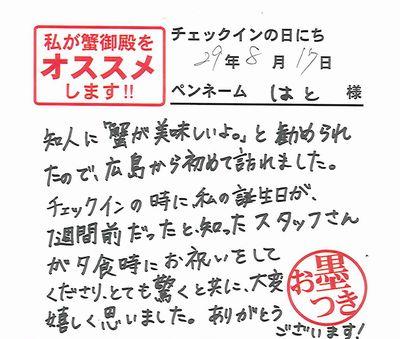 私が蟹御殿を
オススメ
します!!
チェックインの日にち
29年8月17日
ペンネーム はと 様
知人に『蟹が美味しいよ。』と勧められ
たので、広島から初めて訪れました。
チェックインの時に、私の誕生日が、
1週間前だったと、知ったスタッフさん
が夕食時にお祝いをして
くださり、とても驚くと共に、大変
嬉しく思いました。ありがとう
ございます!
お墨
つき